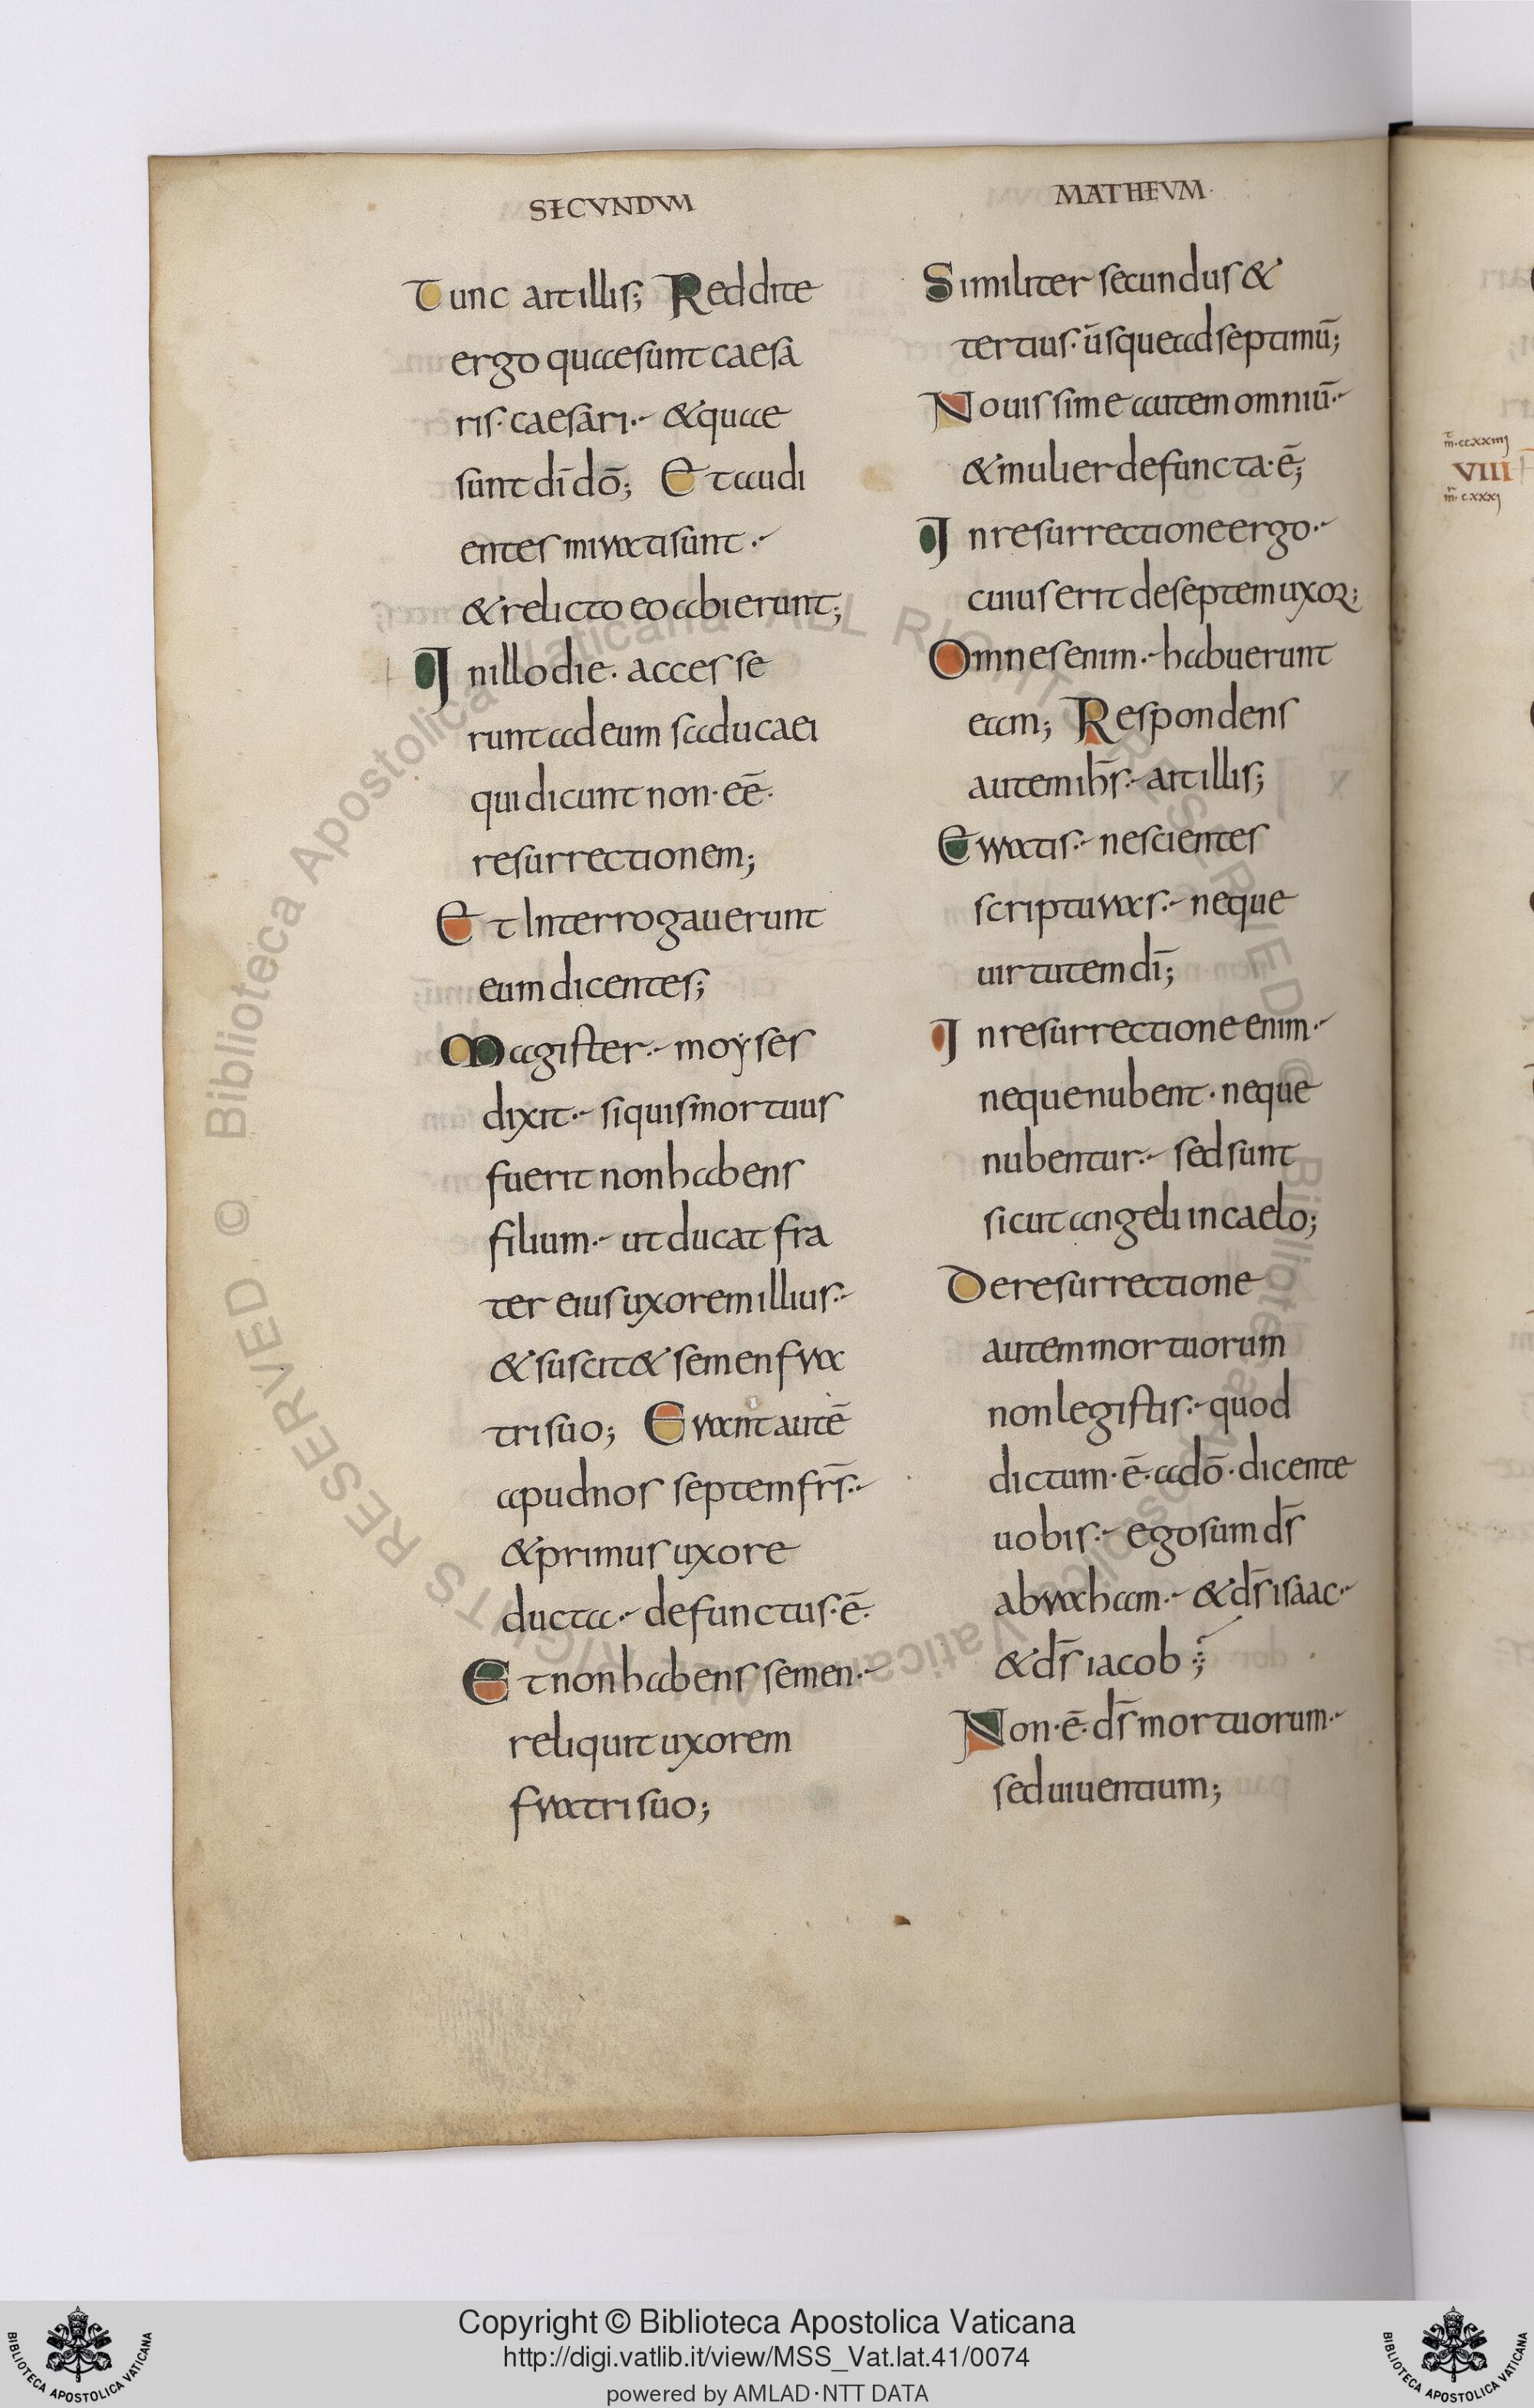 SECVNDVM
Tunc ait illis; Reddite
ergo quae sunt caesa
ris· caesari·- & quae
sunt dī dō; Et audi
entes mirati sunt·-
& relicto eo abierunt;
In illo die· accesse
runt ad eum sadducaei
qui dicunt non· eē·
resurrectionem;
Et Interrogauerunt
eum dicentes;
Magister·- moyses
dixit·- si quis mortuus
fuerit non habens
filium·- ut ducat fra
ter eius uxorem illius·-
& suscit& semen fra
tri suo; Erant autē
apud nos septem frs̄·-
& primus uxore
ducta·- defunctus· ē·
Et non habens semen·-
reliquit uxorem
fratri suo;
MATHEVM·
Similiter secundus &
tertius· usque ad septimū;
Nouissime autem omniū·-
& mulier defuncta· ē;
In resurrectione ergo·-
cuius erit de septem uxor;
Omnes enim·- habuerunt
eam; Respondens
autem ihs̄·- ait illis;
Erratis·- nescientes
scripturas·- neque
uirtutem dī;
In resurrectione enim·-
neque nubent· neque
nubentur·- sed sunt
sicut angeli in caelo;
De resurrectione
autem mortuorum
non legistis·- quod
dictum· ē· a dō· dicente
uobis·- ego sum ds̄
abraham·- & ds̄ isaac·-
& ds̄ iacob;
Non· ē· ds̄ mortuorum·-
sed uiuentium;
VIII
© Biblioteca Apostolica Vaticana ALL RIGHTS RESERVED
© Biblioteca Apostolica Vaticana ALL RIGHTS RESERVED
Copyright © Biblioteca Apostolica Vaticana
http://digi.vatlib.it/view/MSS_Vat.lat.41/0074
powered by AMLAD·NTT DATA
BIBLIOTECA APOSTOLICA VATICANA
BIBLIOTECA APOSTOLICA VATICANA